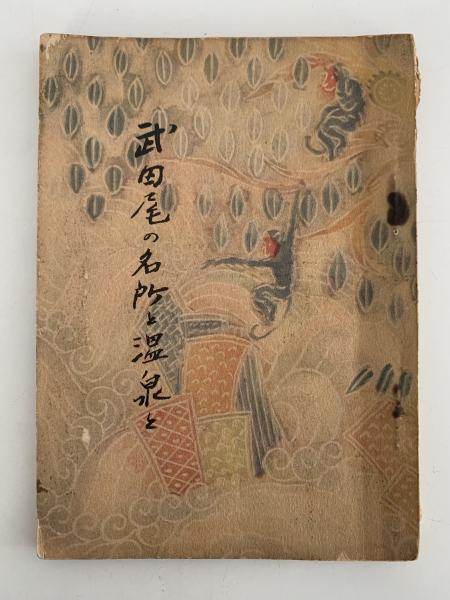 武田尾の名所と温泉と